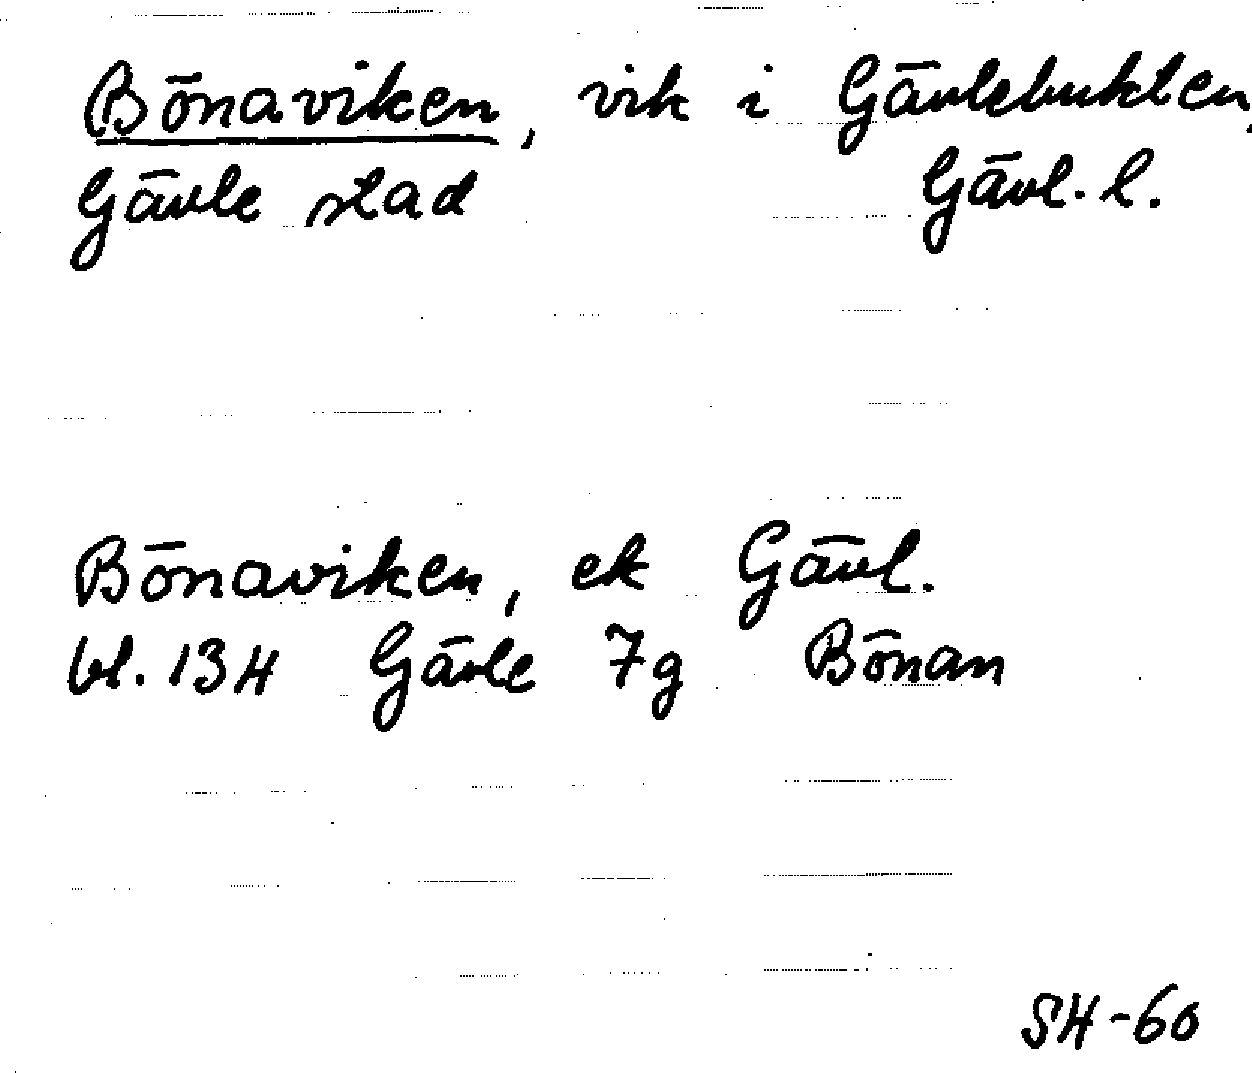 Bönaviken, vik i Gävlebukten,
Gävle stad Gävl. l.
Bönaviken, ek Gävl.
bl. 13H Gävle 7g Bönan
SH-60